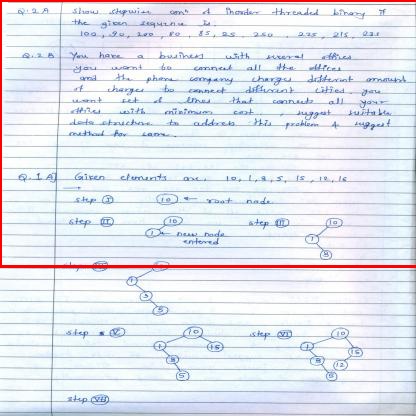 Q.2 A Show stepwise conⁿ of inorder threaded binary if
the given sequence is.
100, 90, 200, 80, 85, 25, 250, 225, 215, 235
Q.2 B You have a business with several offices
you want to connect all the offices
and the phone company charges different amounts
of charges to connect different cities. you
want set of lines that connects all your
offices with minimum cost, suggest suitable
data structure to address this problem & suggest
method for same.
Q.1 A) Given elements are, 10, 1, 8, 5, 15, 12, 16
step I 10 ← root node
step II 10 step III 10
1 ← new node 1
entered 8
1
3
5
step V 10 step VI 10
1 15 1 15
8 8 12
5 5
step VII